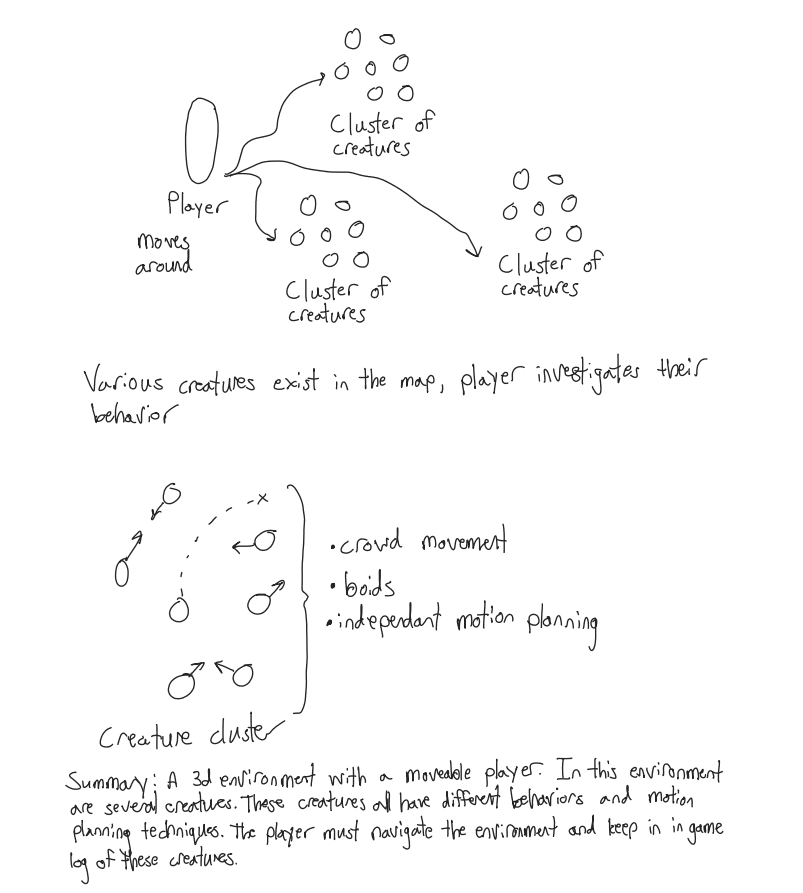 Cluster of
creatures
Player
moves
around
Cluster of
creatures
Cluster of
creatures
Various creatures exist in the map, player investigates their
behavior
• crowd movement
• boids
• independant motion planning
Creature cluster
Summary: A 3d environment with a moveable player. In this environment
are several creatues. These creatures all have different behaviors and motion
planning techniques. The player must navigate the environment and keep in in game
log of these creatures.